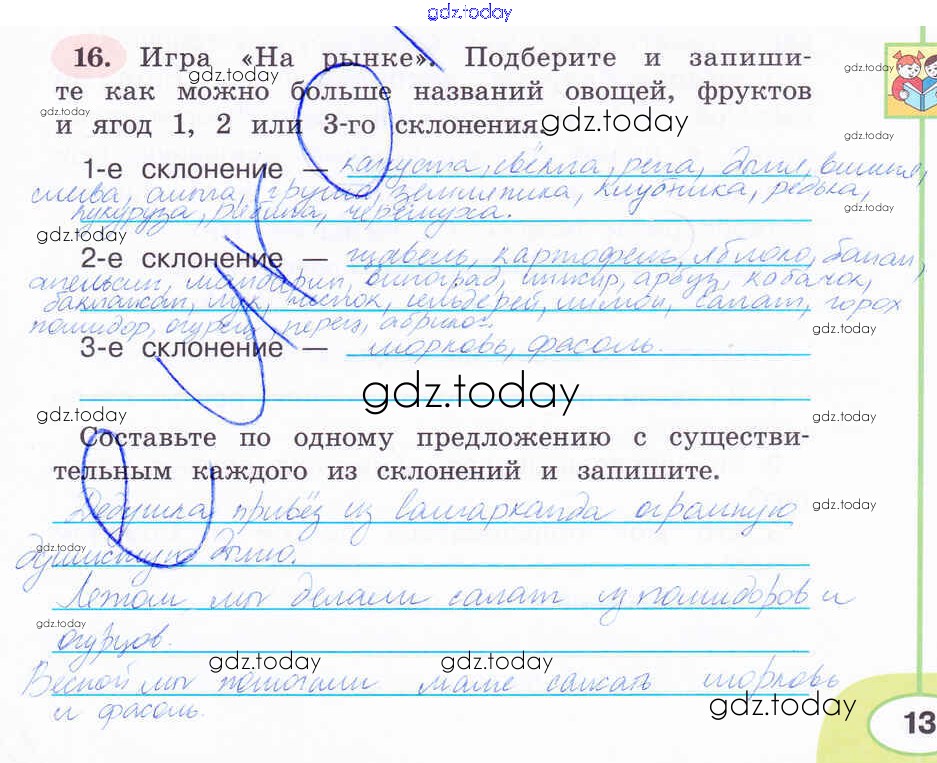 gdz.today
16. Игра «На рынке». Подберите и запиши-
gdz.today
те как можно больше названий овощей, фруктов
и ягод 1, 2 или 3-го склонения.
gdz.today
1-е склонение — капуста, свёкла, репа, дыня, вишня,
слива, айва, груша, земляника, клубника, редька,
кукуруза, рябина, черёмуха.
gdz.today
2-е склонение — щавель, картофель, яблоко, банан,
апельсин, мандарин, виноград, инжир, арбуз, кабачок,
баклажан, лук, чеснок, сельдерей, лимон, салат, горох
помидор, огурец, перец, абрикос.
gdz.today
3-е склонение — морковь, фасоль.
gdz.today
gdz.today
gdz.today
Составьте по одному предложению с существи-
тельным каждого из склонений и запишите.
Дедушка привёз из огромную
gdz.today
gdz.today
дыню.
Летом мы делали салат из помидоров и
gdz.today
огурцов.
gdz.today
gdz.today
Весной мы помогали маме сажать морковь
и фасоль.
gdz.today
13